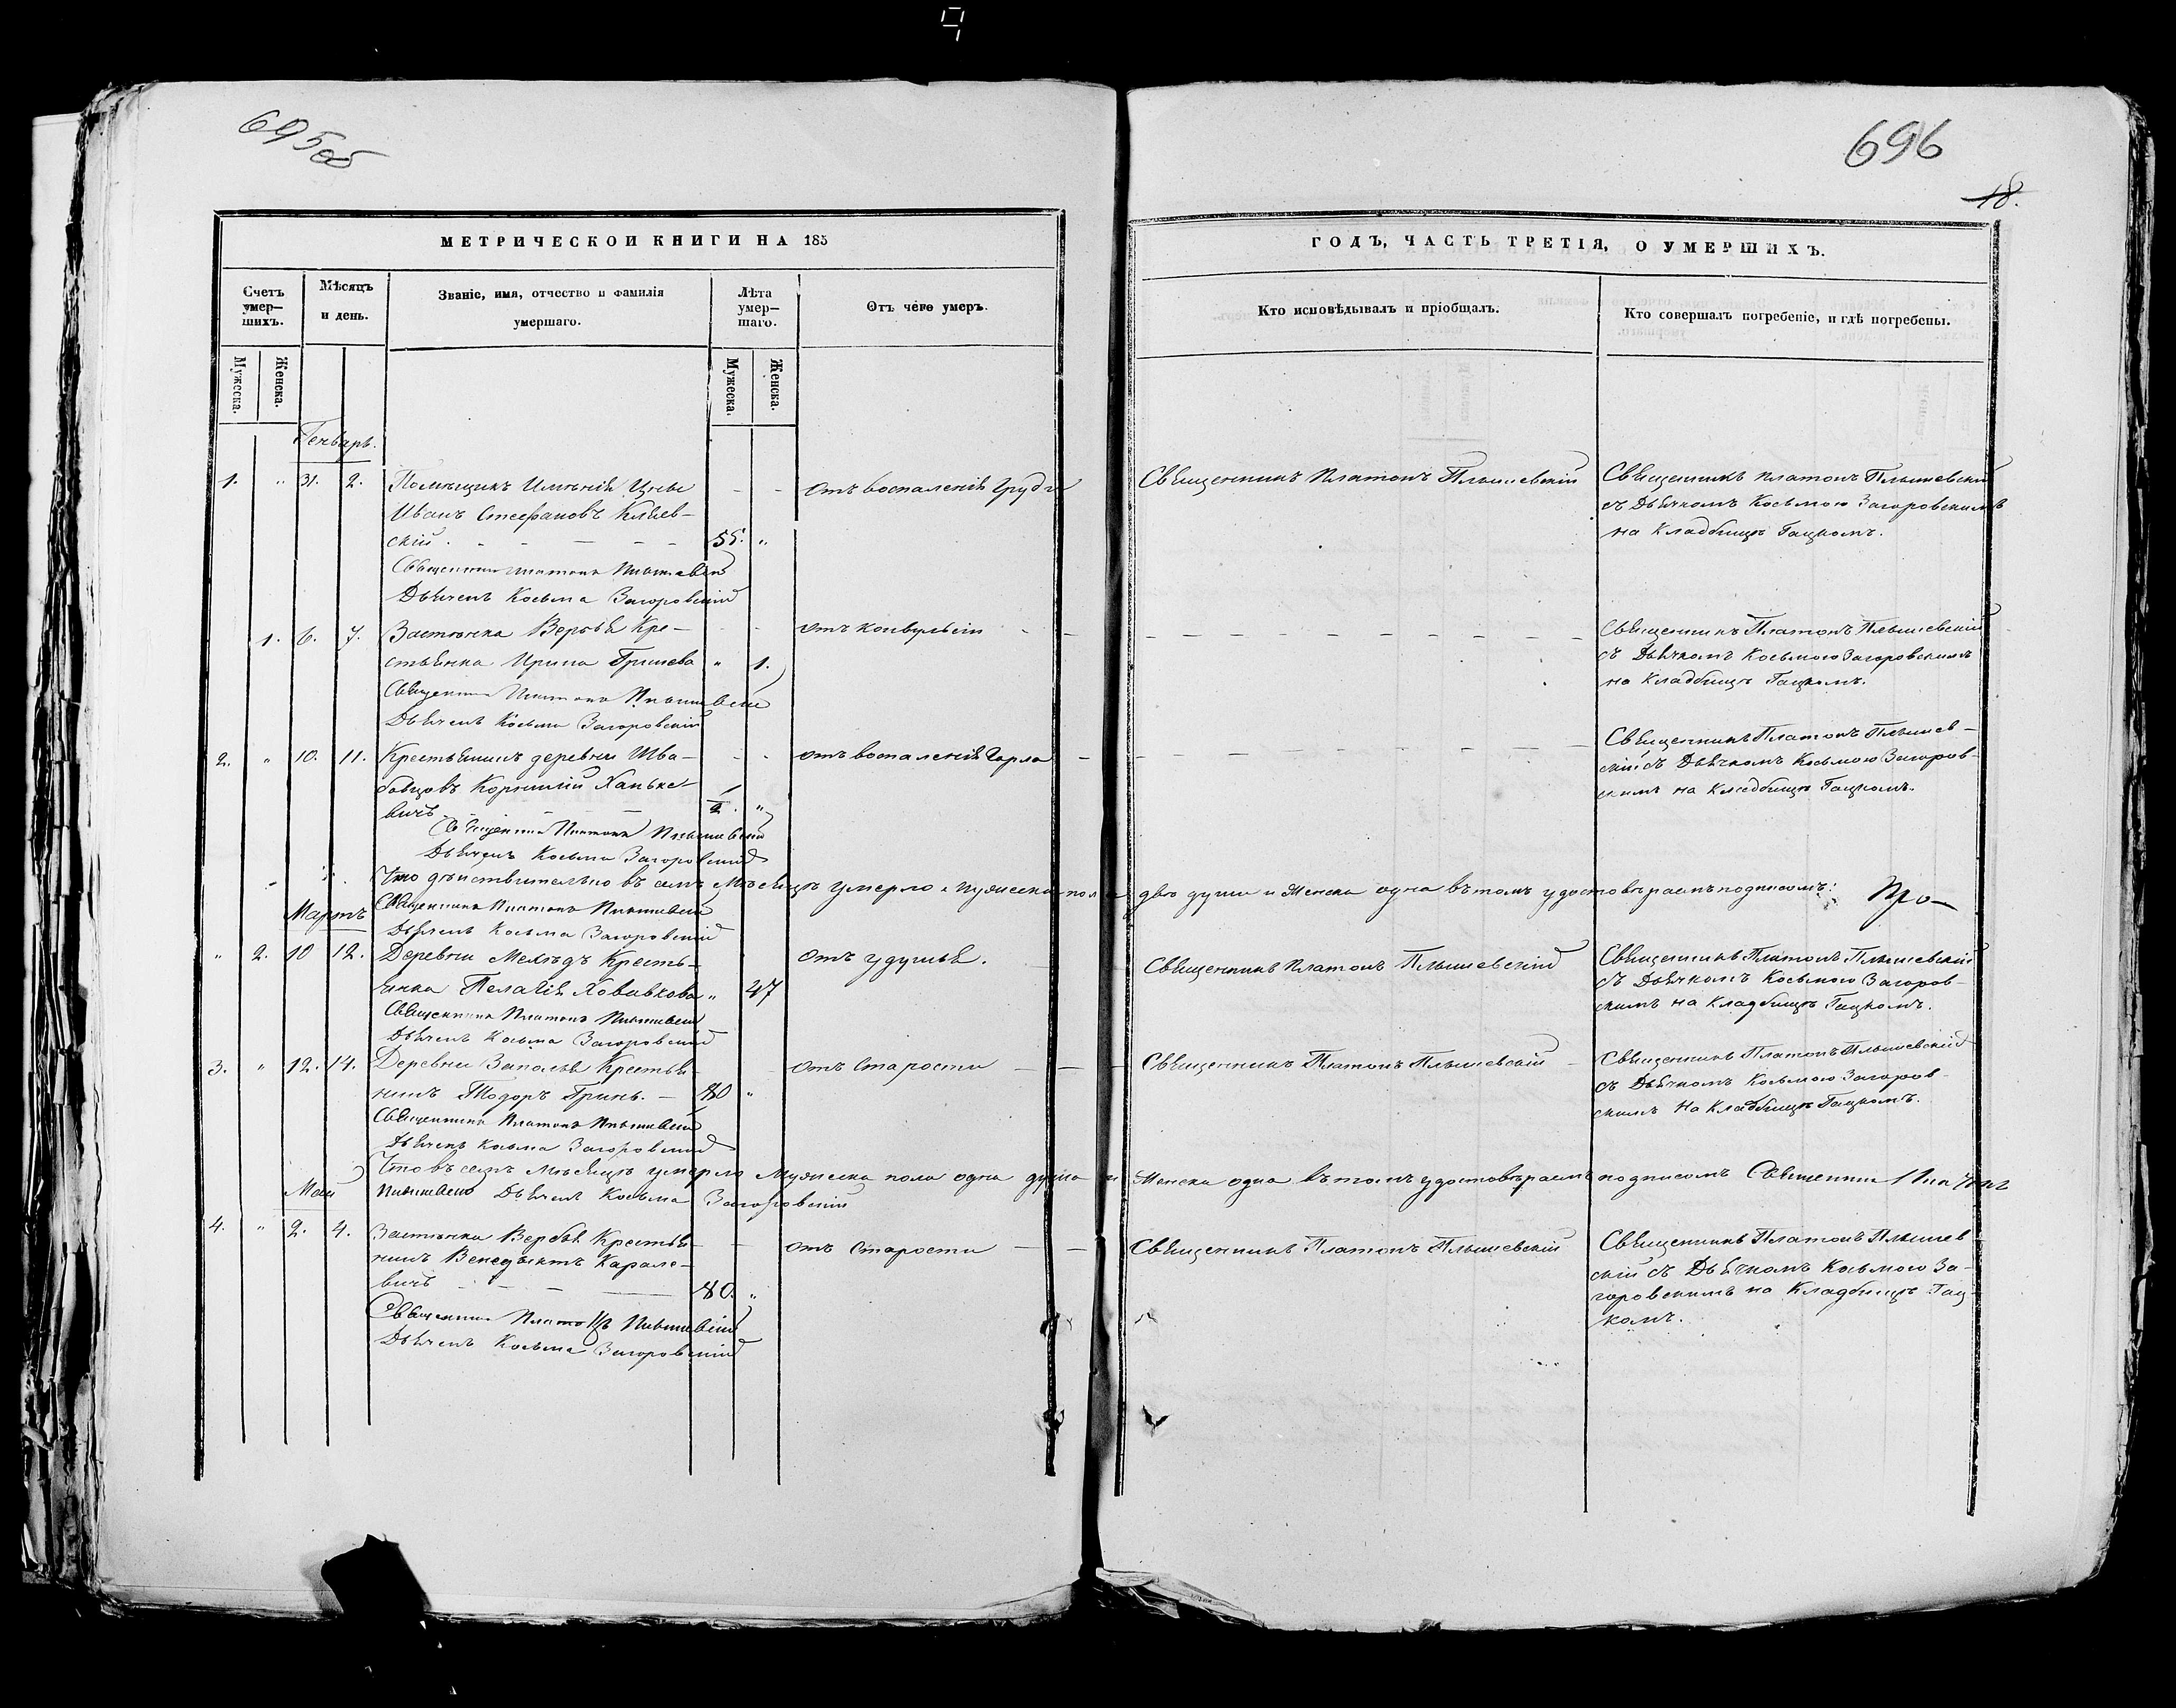 695об
696
18.
МЕТРИЧЕСКОЙ КНИГИ НА 185
ГОДЪ, ЧАСТЬ ТРЕТІЯ, О УМЕРШИХЪ.
Счетъ умер-шихъ.
Мѣсяцъ и день.
Званіе, имя, отчество и фамилія умершаго.
Лѣта умер-шаго.
Отъ чего умеръ.
Кто исповѣдывалъ и пріобщалъ.
Кто совершалъ погребеніе, и гдѣ погребены.
Мужеска.
Женска.
Мужеска.
Женска.
Генварь.
1. " 31. 2. Помѣщикъ Имѣнія Цны
Иванъ Стефановъ
скій 55. "
Отъ воспаленія Груди
Священникъ Платонъ Плышевскій
Священникъ Платонъ Плышевскій
съ Дьячкомъ Косьмою Загоровскимъ
на Кладбищѣ Гацкомъ.
Священникъ Платонъ Плышевскій
Дьячекъ Косьма Загоровскій
1. 6. 7. Застѣнка Вербья Кре-
стьянка Ирина Гришева " 1.
отъ конвульсіи
Священникъ Платонъ Плышевскій
съ Дьячкомъ Косьмою Загоровскимъ
на Кладбищѣ Гацкомъ.
Священникъ Платонъ Плышевскій
Дьячекъ Косьма Загоровскій
2. " 10. 11. Крестьянинъ деревни Шва-
бовцовъ Корнилій Ханьке-
вичъ "
отъ воспаленія Горла
Священникъ Платонъ Плышев-
скій съ Дьячкомъ Косьмою Загоров-
скимъ на Кладбищѣ Гацкомъ.
Священникъ Платонъ Плышевскій
Дьячекъ Косьма Загоровскій
Что дѣйствительно въ семъ Мѣсяцѣ умерло мужеска пола двѣ души и Женска одна въ томъ удостовѣряемъ подписомъ:
Священникъ Платонъ Плышевскій
Дьячекъ Косьма Загоровскій
Мартъ
" 2. 10 12. Деревни Мелѣдъ Кресть-
янка Пелагія Ховавкова " 47
отъ удушья.
Священникъ Платонъ Плышевскій
Священникъ Платонъ Плышевскій
съ Дьячкомъ Косьмою Загоров-
скимъ на Кладбищѣ Гацкомъ.
Священникъ Платонъ Плышевскій
Дьячекъ Косьма Загоровскій
3. " 12. 14. Деревни Заполья Крестья-
нинъ Тодоръ Гринь. 80 "
отъ Старости
Священникъ Платонъ Плышевскій
Священникъ Платонъ Плышевскій
съ Дьячкомъ Косьмою Загоров-
скимъ на Кладбищѣ Гацкомъ.
Священникъ Платонъ Плышевскій
Дьячекъ Косьма Загоровскій
Что въ семъ Мѣсяцѣ умерло Мужеска пола одна душа и Женска одна въ томъ удостовѣряемъ подписомъ Священникъ Платонъ
Плышевскій Дьячекъ Косьма Загоровскій
Май
4. " 2. 4. Застѣнка Вербья Крестья-
нинъ Венедыктъ Карале-
вичъ 80. "
отъ Старости
Священникъ Платонъ Плышевскій
Священникъ Платонъ Плышев
скій съ Дьячкомъ Косьмою За-
горовскимъ на Кладбищѣ Гац-
комъ.
Священникъ Платонъ Плышевскій
Дьячекъ Косьма Загоровскій